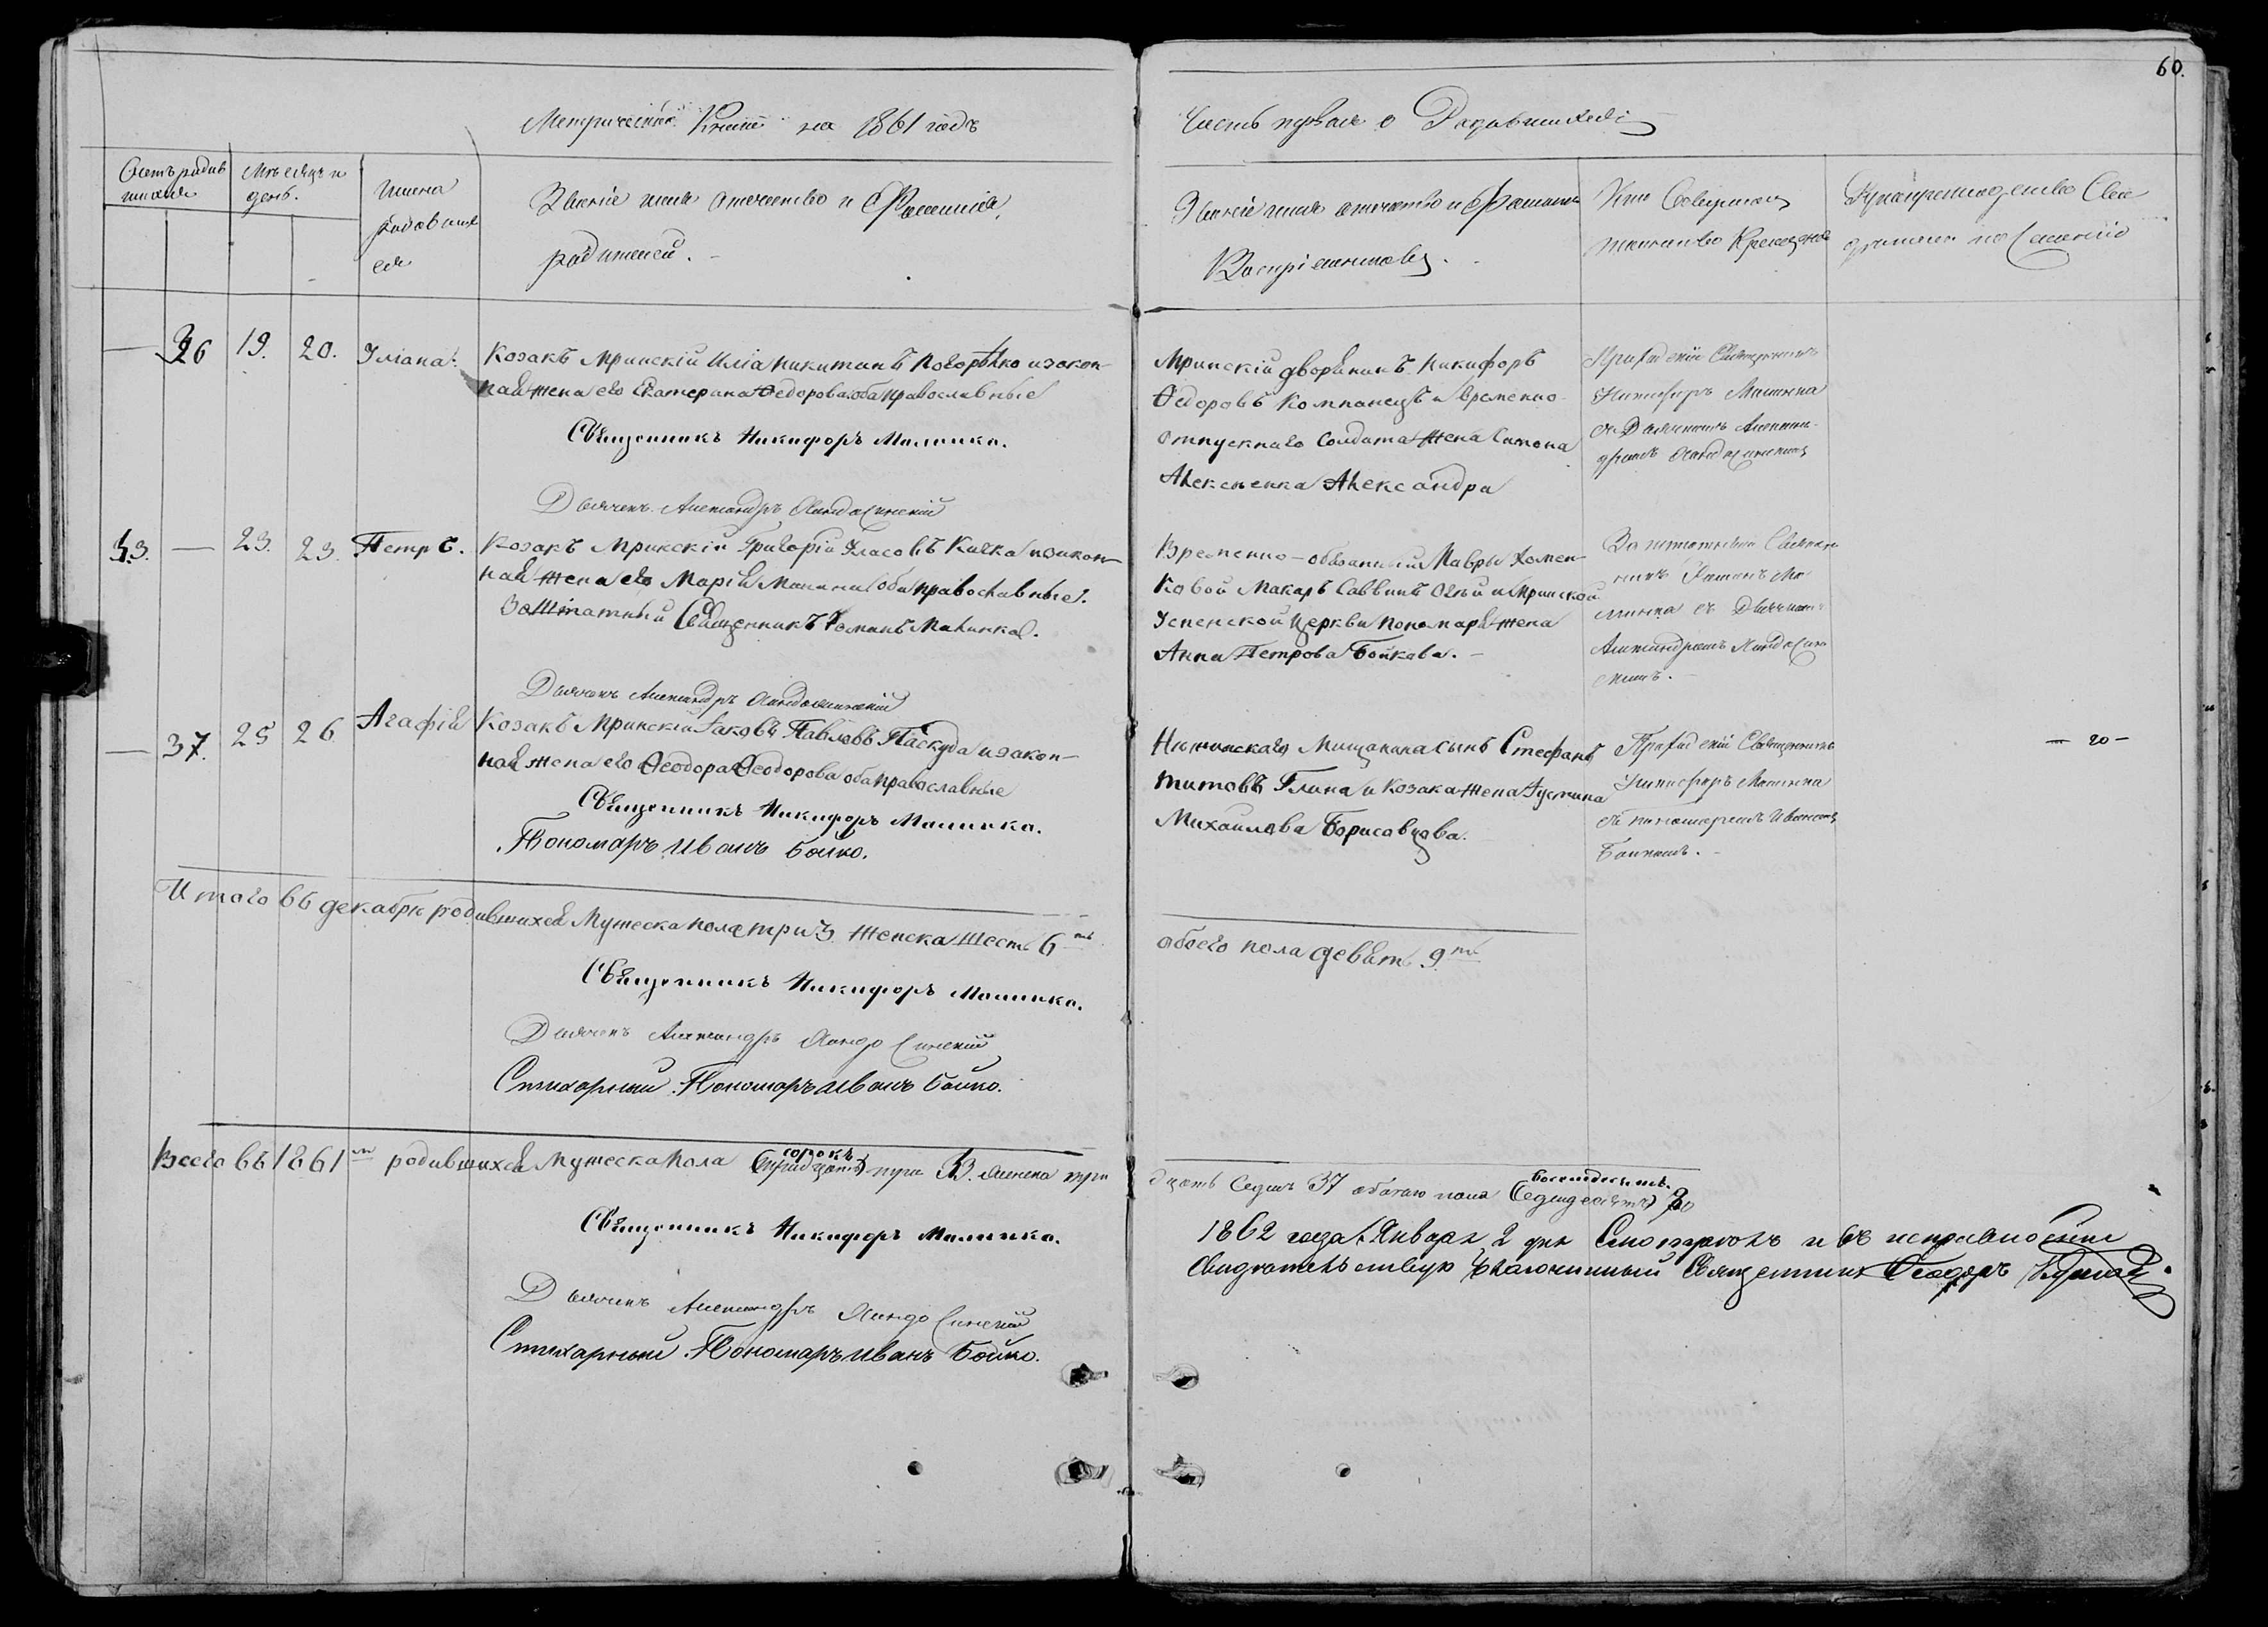 60.
Метрической Книги на 1861 годъ
Часть первая о Родившихся
Счетъ родив
шихся
Мѣсяцъ и
день.
Имена
родовших
ся
Званіе имя отечество и Фамилія,
родителей.
Званіе имя отечество и Фамилія
Воспріемниковъ.
Кто Совершалъ
таинство Крещенія
Рукоприкладство Сви
дѣтелей по
— 36 19. 20. Уліана.
Козакъ Мринскій Иліа Никитинъ Погорѣлко и закон-
наѧ жена его Екатерина Ѳедорова оба православные
Священникъ Никифоръ Малинка.
Дьячекъ Александръ
Мринскій дворѧнинъ Никифоръ
Ѳедоровъ Компанецъ и временно-
отпускнаго Солдата жена
Алексеенка Александра
Приходскій Священникъ
Никифоръ Малинка
съ Дьячкомъ Алексан-
дромъ
43. — 23. 23. Петръ.
Козакъ Мринскій Григорій Уласовъ Кичка и закон-
наѧ жена его Маріѧ оба православные.
Заштатный Священникъ Романъ Малинка.
Дьячекъ Александръ
Временно-обѧзанный Мавры Хомен-
ковой Макаръ Саввинъ и Мринской
Успенской Церкви Пономарѧ жена
Анна Петрова Бойкова. —
Заштатный Священ
никъ Романъ Ма
линка съ Дьячкомъ
Александромъ
скимъ. —
— 37. 25 26 Агафіѧ
Козакъ Мринскій Іаковъ Павловъ Паскуда и закон-
наѧ жена его Ѳеодора Ѳеодорова оба православные
Священникъ Никифоръ Малинка.
Пономаръ Иванъ Бойко.
Нѣжинскаго Мищанина сынъ Стефанъ
Титовъ Глина и Козака жена Іустина
Михаилова Борисовцова.
Приходскій Священникъ
Никифоръ Малинка
съ пономаремъ Иваномъ
Бойкомъ. —
— 20 —
Итого въ декабрѣ родившихсѧ Мужеска пола три 3 женска шесть 6 ть
обоего пола девѧть 9 ть
Священникъ Никифоръ Малинка.
Дьячекъ Александръ
Стихарный Пономаръ Иванъ Бойко.
Всего въ 1861 м родившихсѧ Мужеска пола (тридцать) сорокъ три 43. женска три
дцать седмъ 37 обоего пола (седмдесятъ) восемдесятъ. 80
Священникъ Никифоръ Малинка.
Дьячекъ Александръ
Стихарный Пономаръ Иванъ Бойко.
1862 года Января 2 дня Смотрѣлъ и въ исправности
свидѣтельствую Благочинный Священникъ Ѳеодоръ